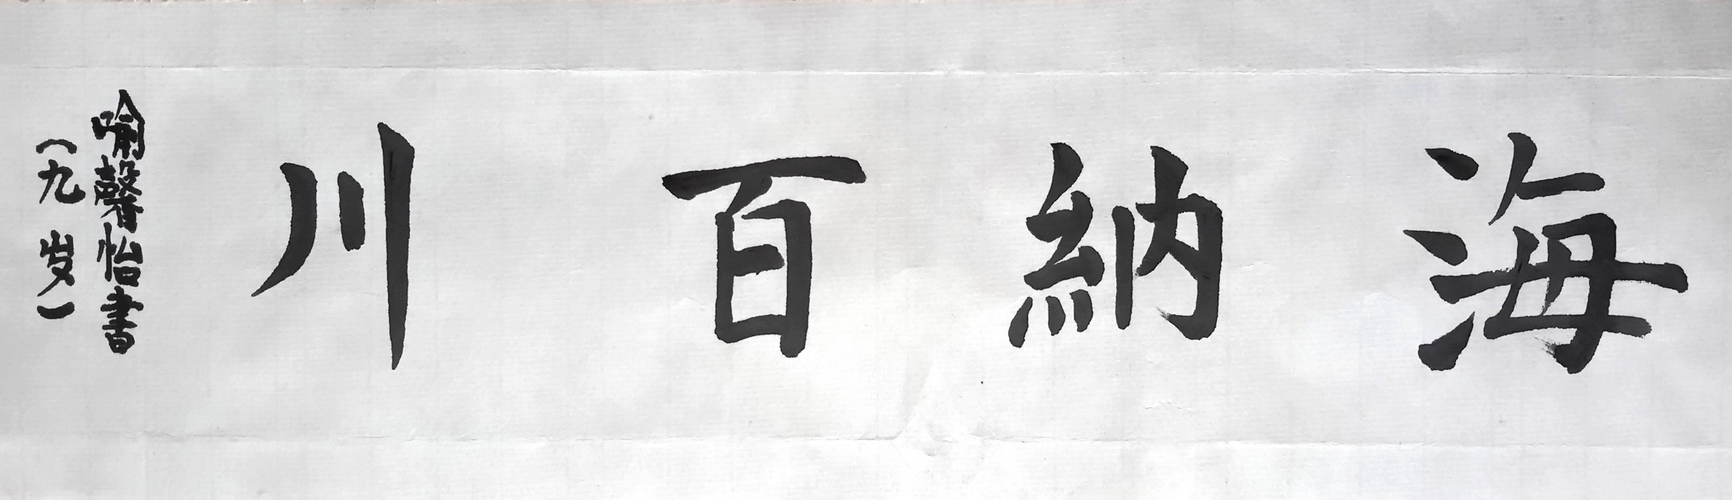 海納百川
喻馨怡書
（九岁）